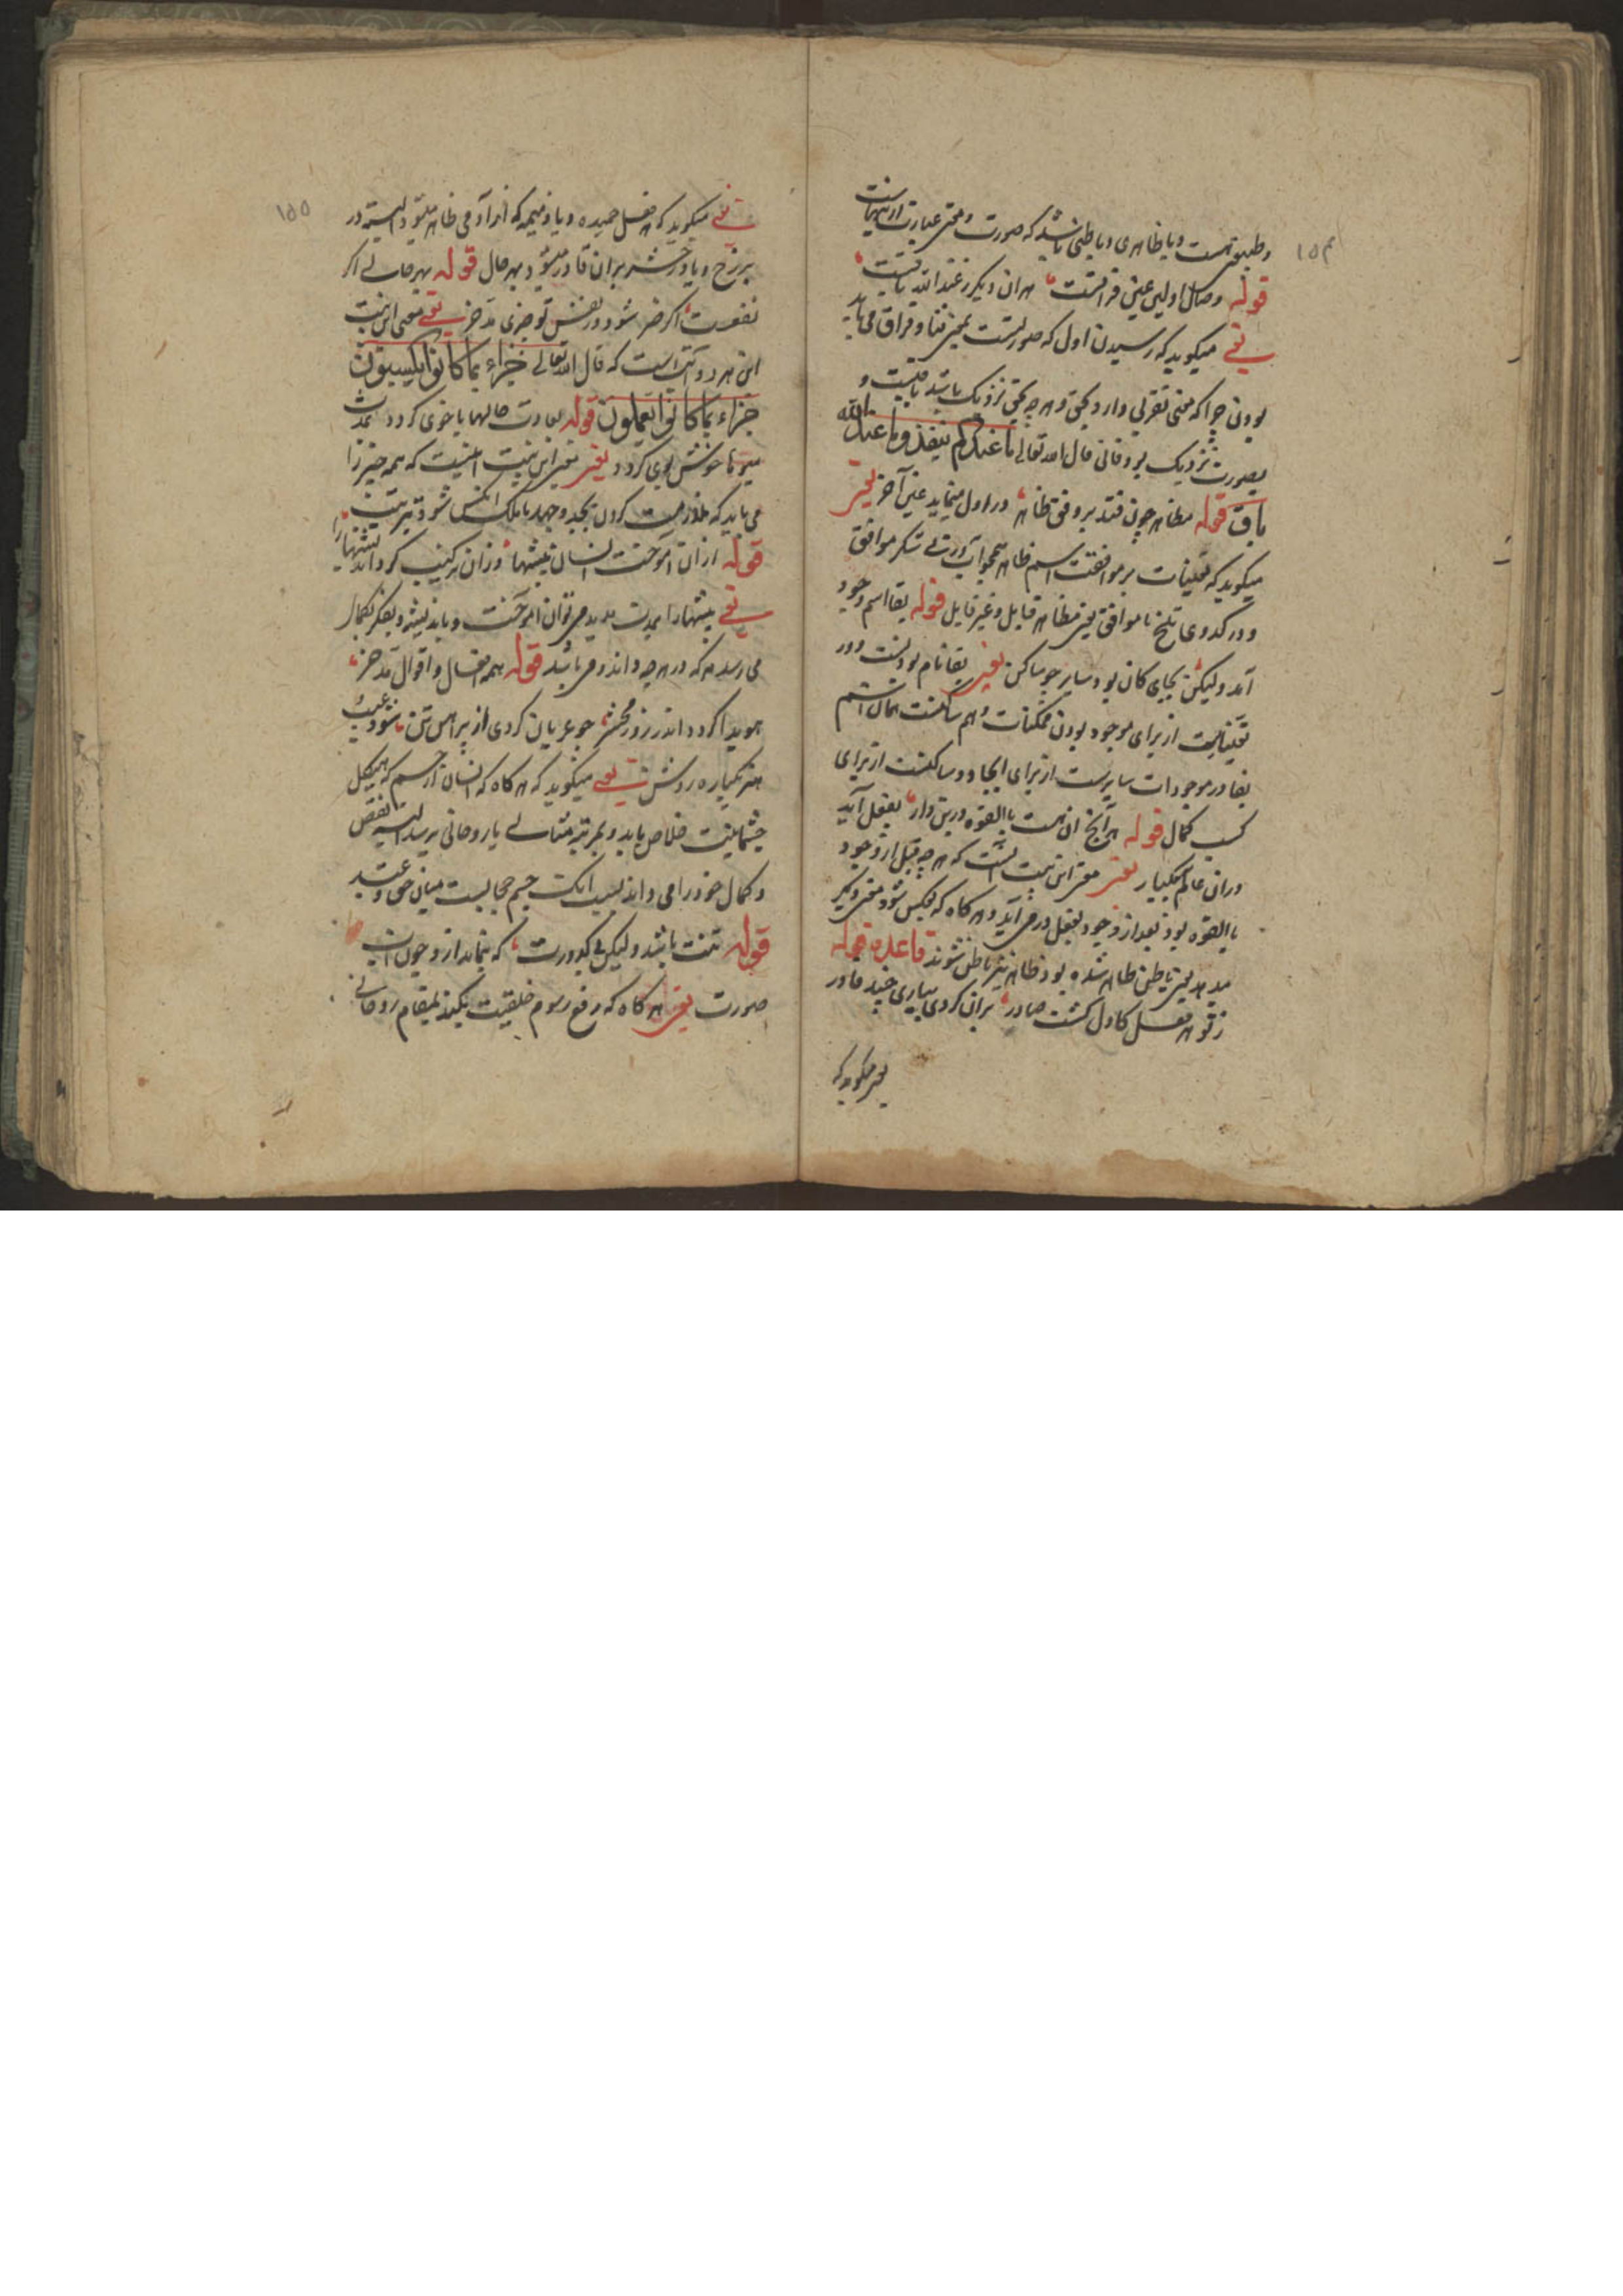 ۱۵۴
و طبیعی است و یا ظاهری و یا باطنی باشد که صورت و معنی عبارت از اینهاست
قوله وصال اولین عین فراقست هر آن دیگر ز عند الله باقیست
یعنی میکوید که رسیدن اول که صورتست بمعنی فنا و فراق می باید
بودن چرا که معنی تقربی دارد بحق و هر چه بحق نزدیک باشد باقیست و
بصورت نزدیک بود فانی قال الله تعالی ما عندکم ینفذ و ما عند الله
باق قوله مظاهر چون فتد بر وفق ظاهر در اول مینماید عین آخر یعنی
میکوید که تعلینات بر موافقت اسم ظاهر همچو آب در نی شکر موافق
و در کدوی تلخ ناموافق یعنی مظاهر قابل و غیر قابل قوله بقا اسم وجود
آمد ولیکن بجای کان بود سایر چو ساکن یعنی بقا نام بودست و در
تعیناتست از برای موجود بودن ممکنات و هم ساکنست همان اسم
بقا در موجودات سایرست از برای ایجاد و ساکنست از برای
کسب کمال قوله هر آنچ آن هست بالقوه درین دار بفعل آید
در آن عالم بیکبار یعنی معنی این بیت آنست که هر چه قبل از وجود
بالقوه بود بعد از وجود بفعل در می آید و هر کاه که بعکس شود معنی دیگر
میدهد یعنی باطن ظاهر شده بود ظاهر نیز باطن شوند قاعده قوله
ز تو هر فعل کاول کشت صادر بر آن کردی بباری چند قادر
یعنی میکوید که
۱۵۵
یعنی میکوید که هر فعل حمیده و یا ذمیمه که از آدمی ظاهر میشود البته در
برزخ و یا در حشر بر آن قادر میشود بهر حال قوله بهر حالی اگر
نفعست اکر ضر شود در نفس تو چیزی مدخر یعنی معنی این بیت
این هر دو آیت است که قال الله تعالی جزاء بما کانوا یکسبون
جزاء بما کانوا یعملون قوله بعادت حالها با خوی کردد بمدت
میوها خوش بوی کردد یعنی معنی این بیت اینست که همه چیز را
می باید که ملازمت کردن بجد و جهد تا ملک النفس شود تربیت
قوله از آن آموخت انسان پیشها وزان ترکیب کرد اندیشها را
یعنی پیشها را بمدت مدید می توان آموخت و باندیشه و بفکر بکمال
می رسد هر که در هر چه داند و می باشد قوله همه افعال و اقوال مدخر
هویدا کردد اندر روز محشر چو عریان کردی از پیراهن تن شود عیب
هنر یکباره روشن یعنی میکوید که هر کاه که انسان از جسم که هیکل
جثمانیت خلاص یابد و بمرتبه مثالی یا روحانی برسد البته نقص
و کمال خود را می داند بسبب آنک جسم حجابیست میان حق و عبد
قوله تنت باشد ولیکن بی کدورت که بنماید از و چون آب
صورت یعنی هر کاه که رفع رسوم خلقیت بکند بمقام روحانی